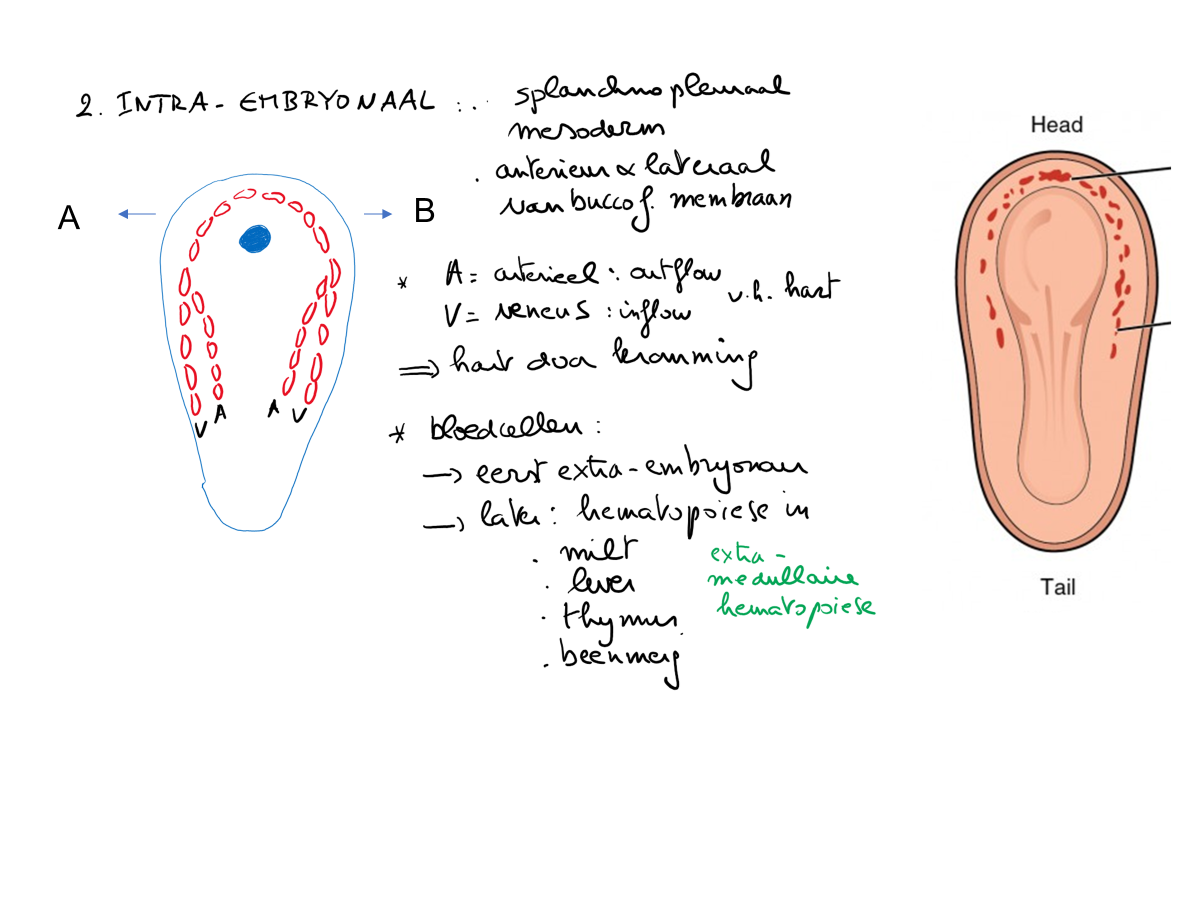 2. INTRA-EMBRYONAAL : . . splanchnopleuraal
mesoderm
. anterieur & lateraal
van buccof. membraan
A
B
* A = arterieel : outflow
V = veneus : inflow
v.h. hart
⇒ hart door kromming
* bloedcellen :
→ eerst extra-embryonaal
→ later : hematopoiese in
. milt
. lever
. thymus
. beenmerg
extra-
medullaire
hematopoiese
V A A V
Head
Tail